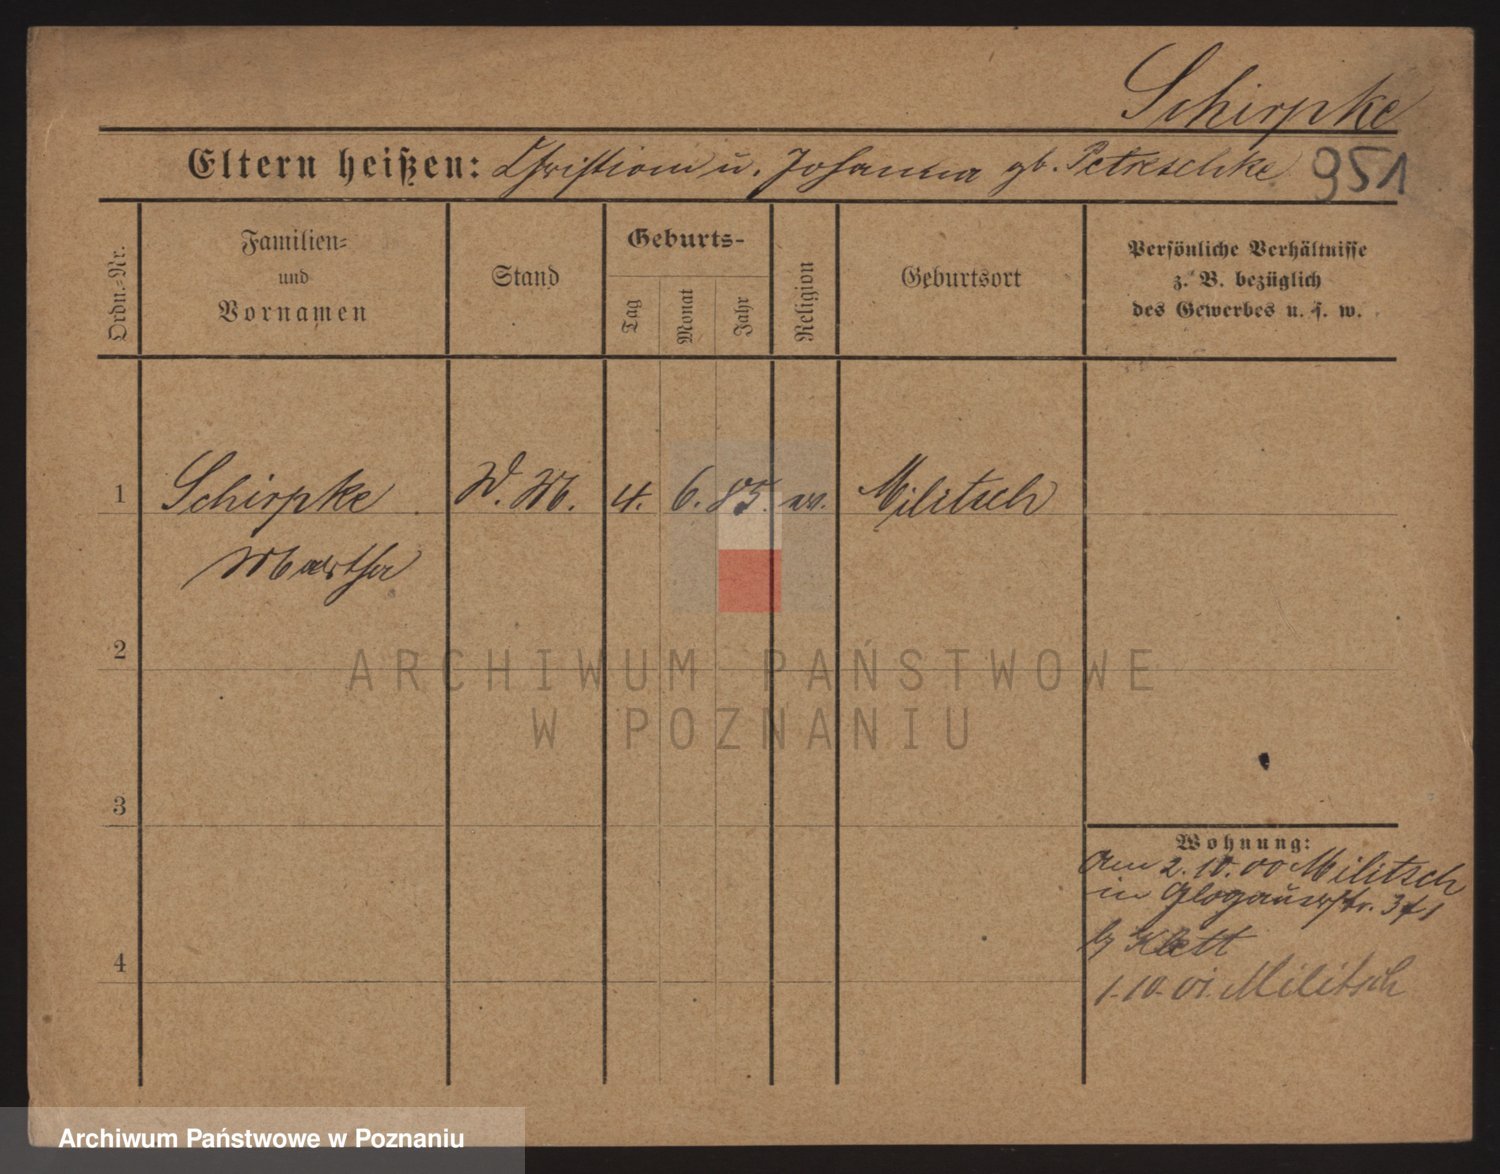 Schirpke
Eltern heißen: Christian u. Johanna gb. Petreschke 951
Ordn.-Nr.
Familien-
und
Vornamen
Stand
Geburts-
Tag
Monat
Jahr
Religion
Geburtsort
Persönliche Verhältnisse
z. B. bezüglich
des Gewerbes u. s. w.
1 Schirpke D. M. 4. 6. 85. ev. Militsch
Martha
2
ARCHIWUM PAŃSTWOWE
W POZNANIU
3
Wohnung:
Am 2.10.00 Militsch
in Glogauerstr.
b/
4
1.10.01. Militsch
Archiwum Państwowe w Poznaniu